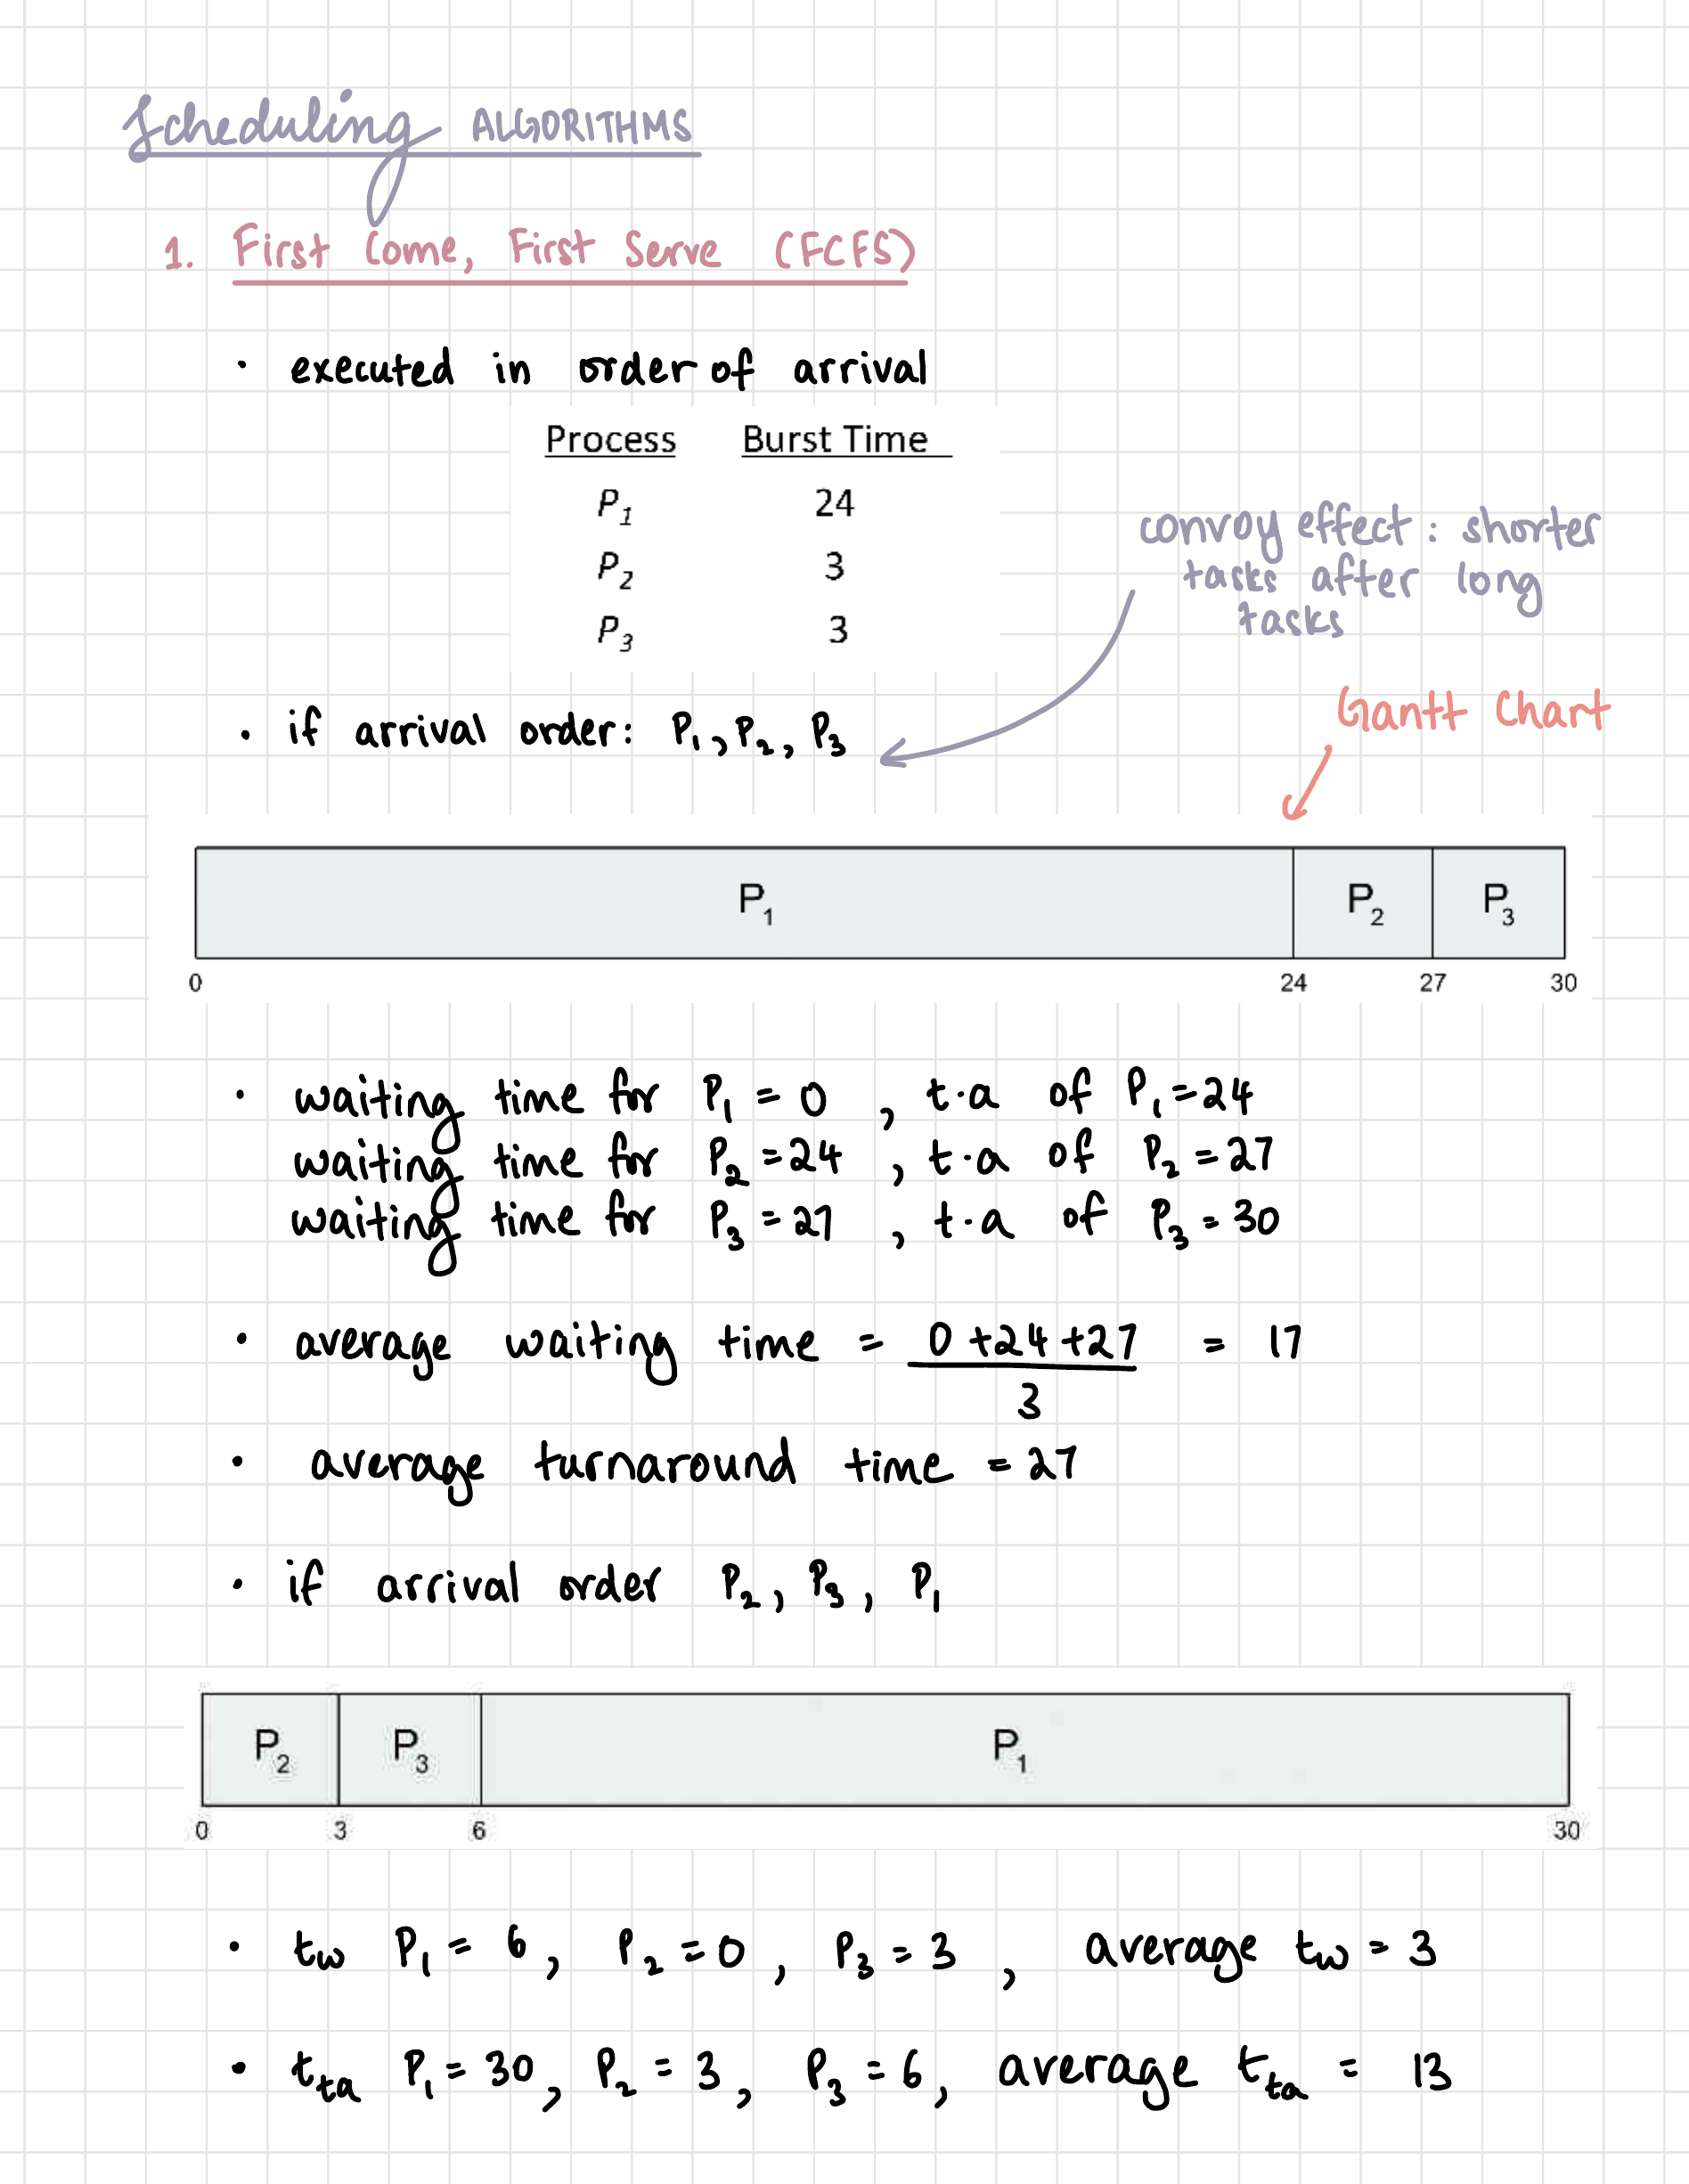 Scheduling ALGORITHMS
1. First Come, First Serve (FCFS)
• executed in order of arrival
Process Burst Time
P1 24
P2 3
P3 3
convoy effect: shorter
tasks after long
tasks
• if arrival order: P1, P2, P3
Gantt Chart
P1 P2 P3
0 24 27 30
• waiting time for P1 = 0 , t.a of P1 = 24
waiting time for P2 = 24 , t.a of P2 = 27
waiting time for P3 = 27 , t.a of P3 = 30
• average waiting time = 0 + 24 + 27 = 17
3
• average turnaround time = 27
• if arrival order P2, P3, P1
P2 P3 P1
0 3 6 30
• tw P1 = 6, P2 = 0, P3 = 3, average tw = 3
• tta P1 = 30, P2 = 3, P3 = 6, average tta = 13